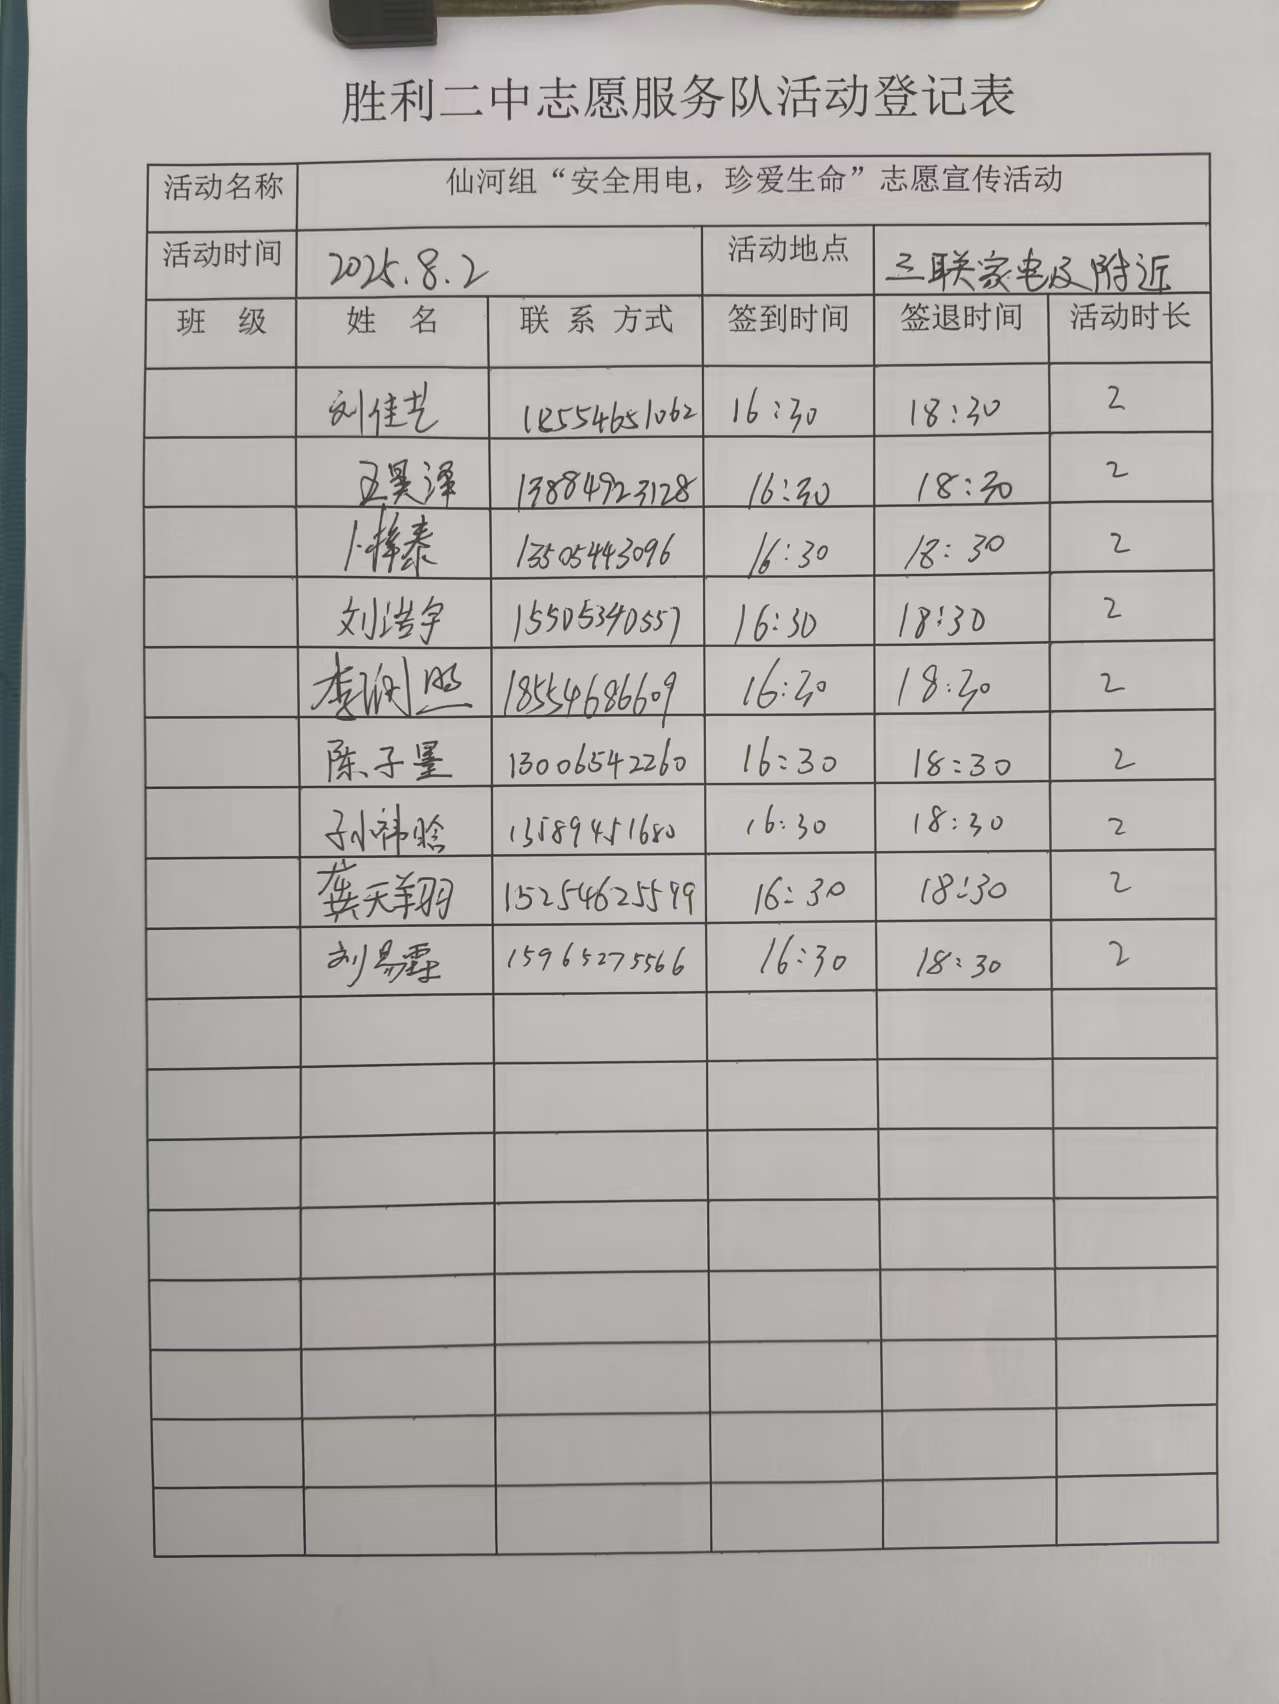 胜利二中志愿服务队活动登记表
活动名称 仙河组“安全用电，珍爱生命”志愿宣传活动
活动时间 2025.8.2 活动地点 三联家电及附近
班 级 姓 名 联 系 方式 签到时间 签退时间 活动时长
刘佳艺 18554651062 16:30 18:30 2
王昊泽 13884923128 16:30 18:30 2
卜梓泰 13505443096 16:30 18:30 2
刘浩宇 15505340557 16:30 18:30 2
李润照 18554686609 16:30 18:30 2
陈子墨 13006542260 16:30 18:30 2
孙祎晗 13589451680 16:30 18:30 2
龚天翔 15254625579 16:30 18:30 2
刘易霖 15965275566 16:30 18:30 2